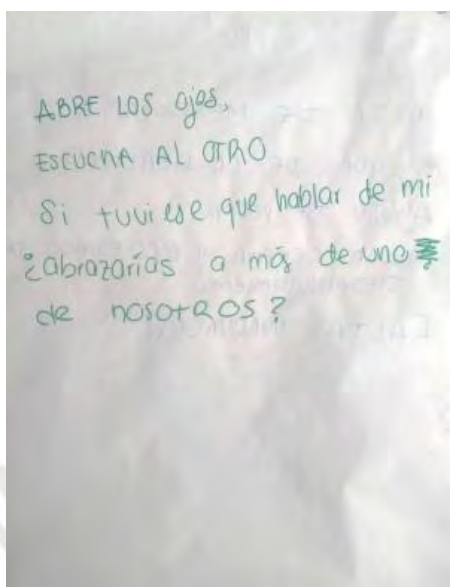 ABRE LOS Ojos,
ESCUCHA AL OTRO
Si tuviese que hablar de mi
¿abrazarías a más de uno
de nosotros?